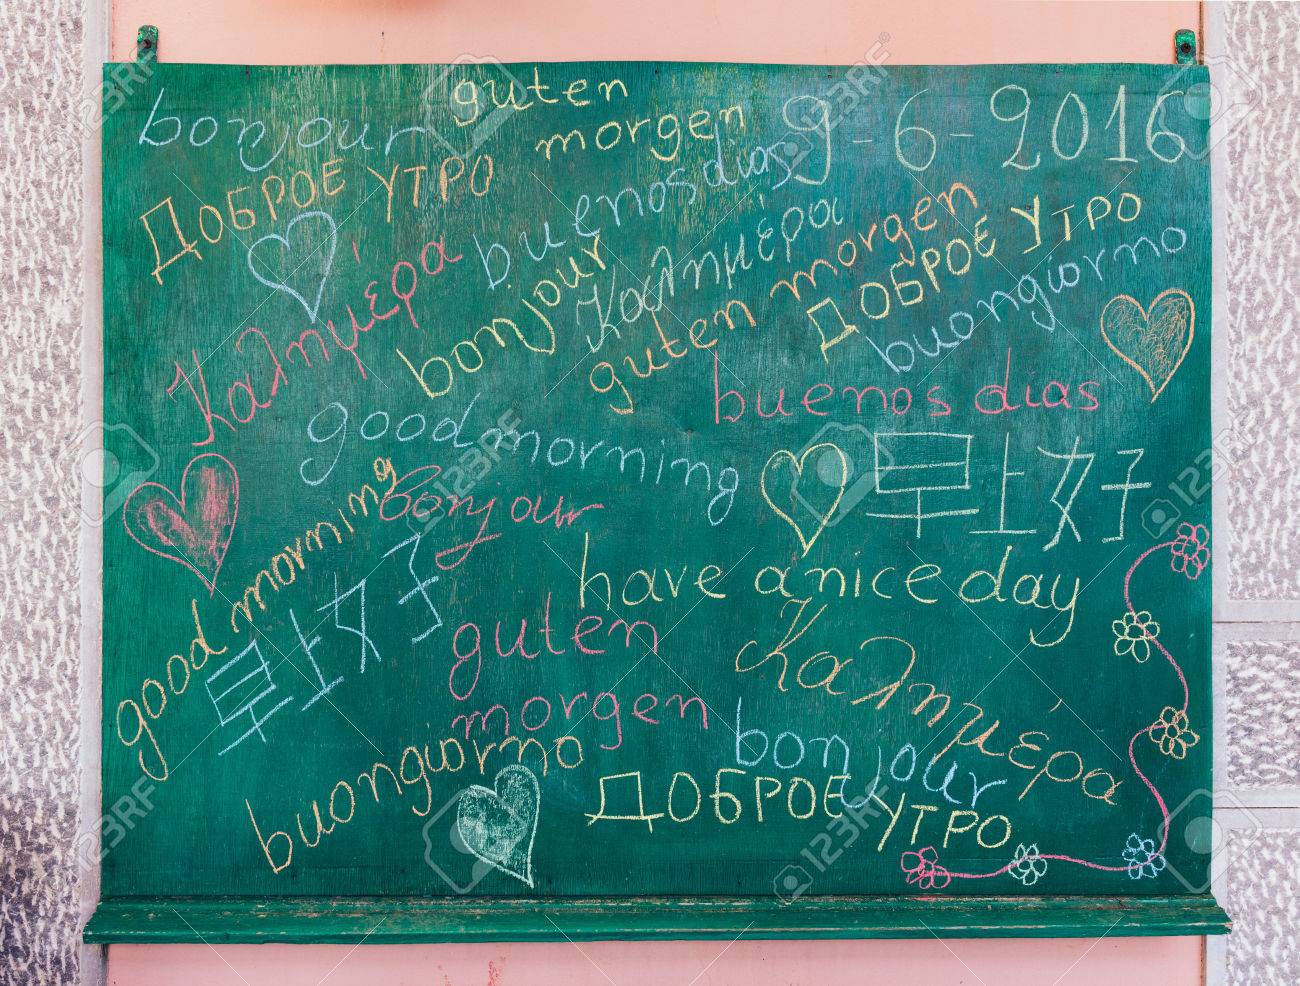 bonjour
guten
morgen
9-6-2016
ДОБРОЕ УТРО
buenos dias
Καλημέρα
bonjour
Καλημέρα
guten morgen
ДОБРОЕ УТРО
buongiorno
Καλημέρα
buenos dias
good morning
早上好
good morning
bonjour
have a nice day
早上好
guten
morgen
buongiorno
bonjour
ДОБРОЕ УТРО